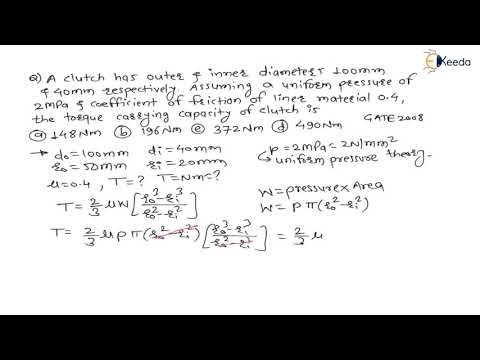 Ekeeda
Q) A clutch has outer & inner diameters 100mm
& 40mm respectively. Assuming a uniform pressure of
2mPa & coefficient of friction of liner material 0.4,
the torque carrying capacity of clutch is
GATE 2008
(a) 148Nm (b) 196Nm (c) 372Nm (d) 490Nm
→ do=100mm di=40mm
ro=50mm ri=20mm
μ=0.4, T=? T=Nm=?
↳ p=2mPa=2N/mm²
uniform pressure theory.
T = 2/3 μW [ro³-ri³/ro²-ri²]
W=pressure×Area
W= pπ(ro²-ri²)
T= 2/3 μpπ(ro²-ri²) [ro³-ri³/ro²-ri²] = 2/3 μ